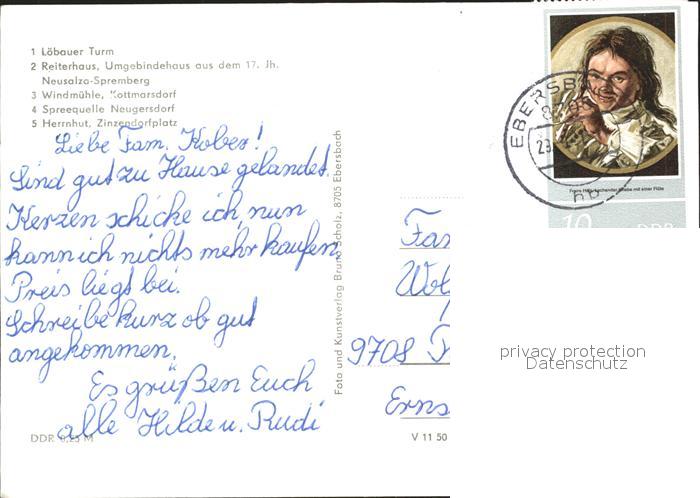 1 Löbauer Turm
2 Reiterhaus, Umgebindehaus aus dem 17. Jh.
Neusalza-Spremberg
3 Windmühle, Kottmarsdorf
4 Spreequelle Neugersdorf
5 Herrnhut, Zinzendorfplatz
Liebe Fam. Kober!
Sind gut zu Hause gelandet.
Kerzen schicke ich, nun
kann ich nichts mehr kaufen,
Preis liegt bei.
Schreibe kurz ob gut
angekommen.
Es grüßen Euch
alle Hilde u. Rudi
DDR 0,25 M
Foto und Kunstverlag Bruno Scholz, 8705 Ebersbach
V 11 50
EBERSB
8705
Frans Hals, Lachender Knabe mit einer Flöte
10 DDR
Fam
9708
Erns
privacy protection
Datenschutz